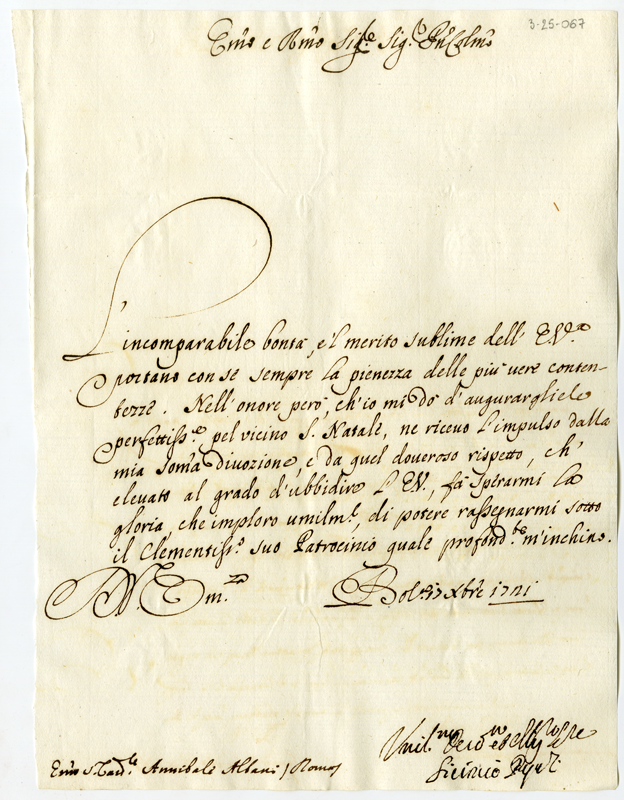 3-25-067
Emo e Rmo Sig.re Sig.r Pnre Colmo
L'incomparabile bontà, e'l merito sublime dell' E.V.ra
portano con se sempre la pienezza delle più vere conten-
tezze. Nell'onore però, ch'io mi dò d'augurargliele
perfettiss.e pel vicino S. Natale, ne ricevo l'impulso dalla
mia somma divozione, e da quel doveroso rispetto, ch'
elevato al grado d'ubbidire l'E.V., fà sperarmi la
gloria, che imploro umilm.e, di potere rassegnarmi sotto
il Clementiss.o suo Patrocinio quale profond.te m'inchino.
Di V. Em.za Bol.a 17 Xbre 1721
Umil.mo Devo.mo ed
Emo S. Card.le Annibale Albani / Roma /